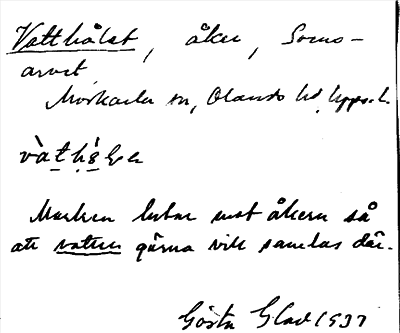 Vatthålet, åker, Sems-
arvet
Morkarla sn, Olands hd, Upps. l.
Marken lutar mot åkern så
att vatten gärna vill samlas där.
Gösta Glad 1937